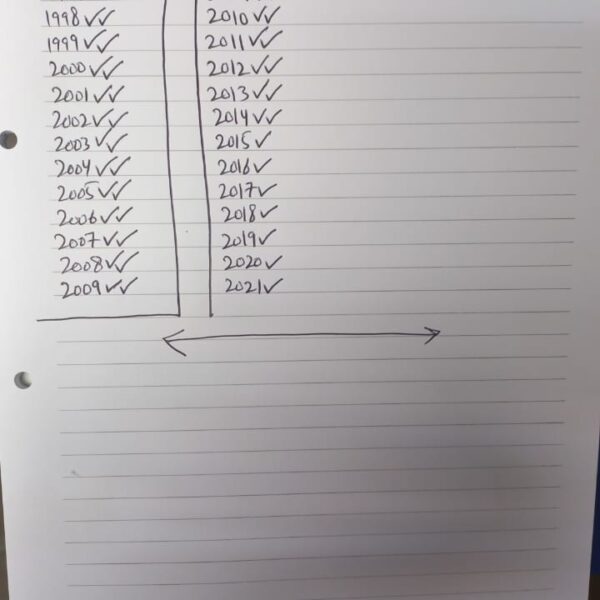 1998 ✓✓
1999 ✓✓
2000 ✓✓
2001 ✓✓
2002 ✓✓
2003 ✓✓
2004 ✓✓
2005 ✓✓
2006 ✓✓
2007 ✓✓
2008 ✓✓
2009 ✓✓
2010 ✓✓
2011 ✓✓
2012 ✓✓
2013 ✓✓
2014 ✓✓
2015 ✓
2016 ✓
2017 ✓
2018 ✓
2019 ✓
2020 ✓
2021 ✓